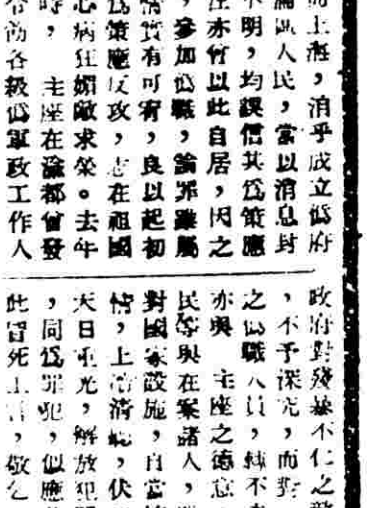 上海，洎乎成立偽府
淪區人民，當以消息封
不明，均誤信其為策應
亦曾以此自居，因之
，參加偽職，論罪雖屬
情實有可宥，良以起初
為策應反攻，志在祖國
心病狂媚敵求榮。去年
時，　主座在渝都曾發
飭各級偽軍政工作人
政府對殘暴不仁之
，不予深究，而對
之偽職人員，轉不
亦與　主座之德意
民等與在案諸人，
對國家設施，自當
情，上瀆清聽，伏
天日重光，解放犯
，同為罪犯，似應
此冒死上言，敬乞